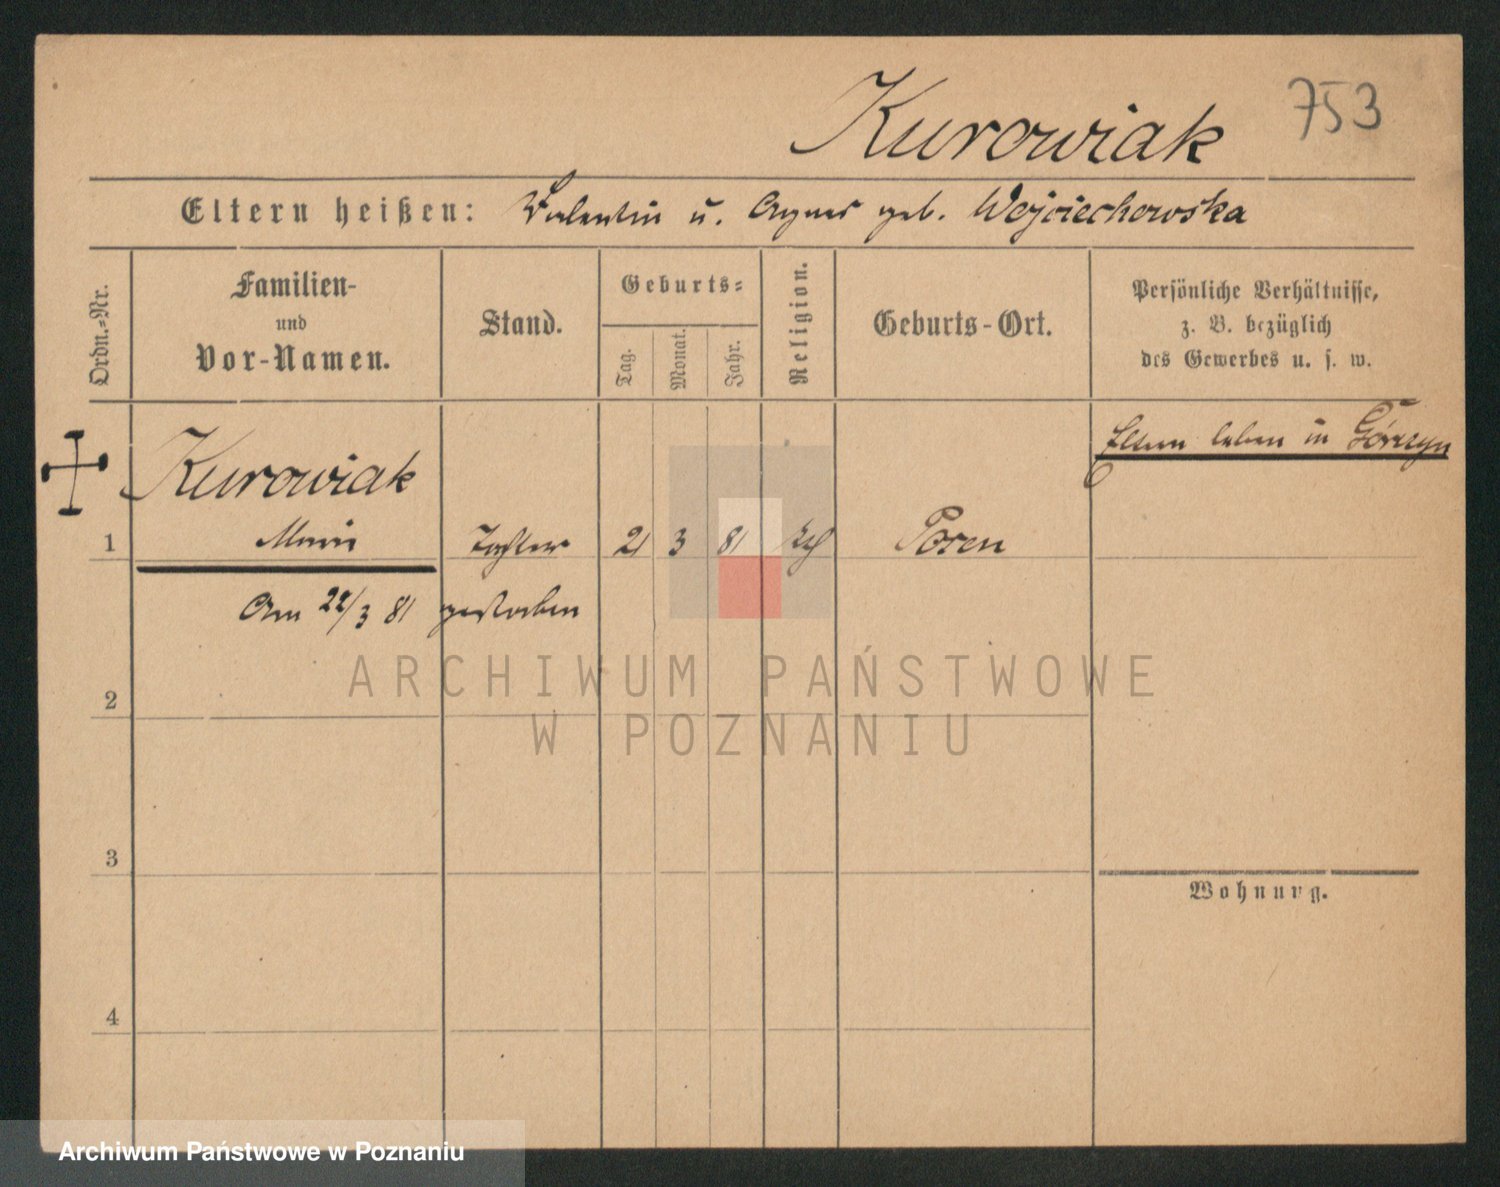 Kurowiak 753
Eltern heißen: Valentin u. Agnes geb. Wojciechowska
Ordn.-Nr.
Familien-
und
Vor-Namen.
Stand.
Geburts-
Tag.
Monat.
Jahr.
Religion.
Geburts-Ort.
Persönliche Verhältnisse,
z. B. bezüglich
des Gewerbes u. s. w.
Eltern leben in Górczyn
Kurowiak
1 Marie Tochter 21 3 81 kth Posen
Am 22/3 81 gestorben
ARCHIWUM PAŃSTWOWE
W POZNANIU
2
3
Wohnung.
4
Archiwum Państwowe w Poznaniu